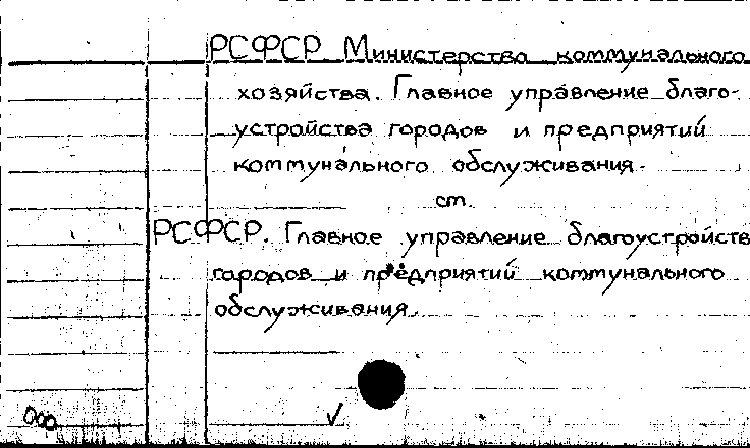 РСФСР Министерство коммунального
хозяйства. Главное управление благо-
устройства городов и предприятий
коммунального обслуживания.
ст.
РСФСР. Главное управление благоустройств
городов и предприятий коммунального
обслуживания.